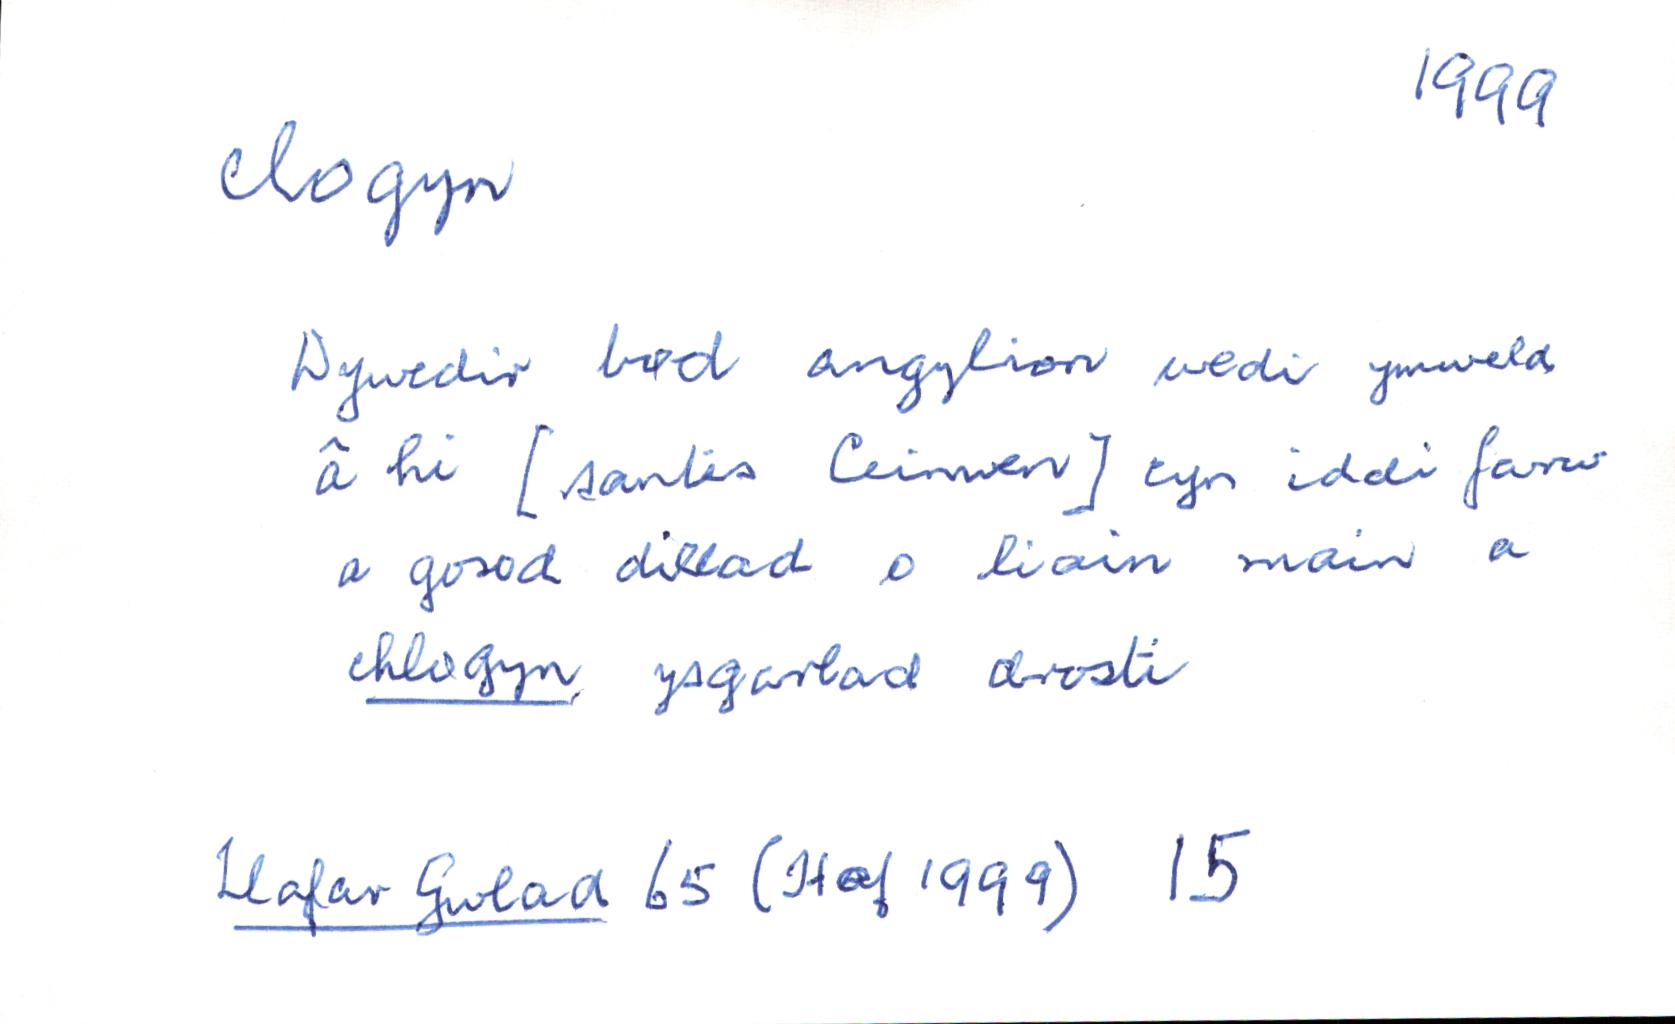 1999
clogyn
Dywedir bod angylion wedi ymweld
â hi [santes Ceinwen] cyn iddi farw
a gosod dillad o liain main a
chlogyn ysgarlad drosti
Llafar Gwlad 65 (Haf 1999) 15